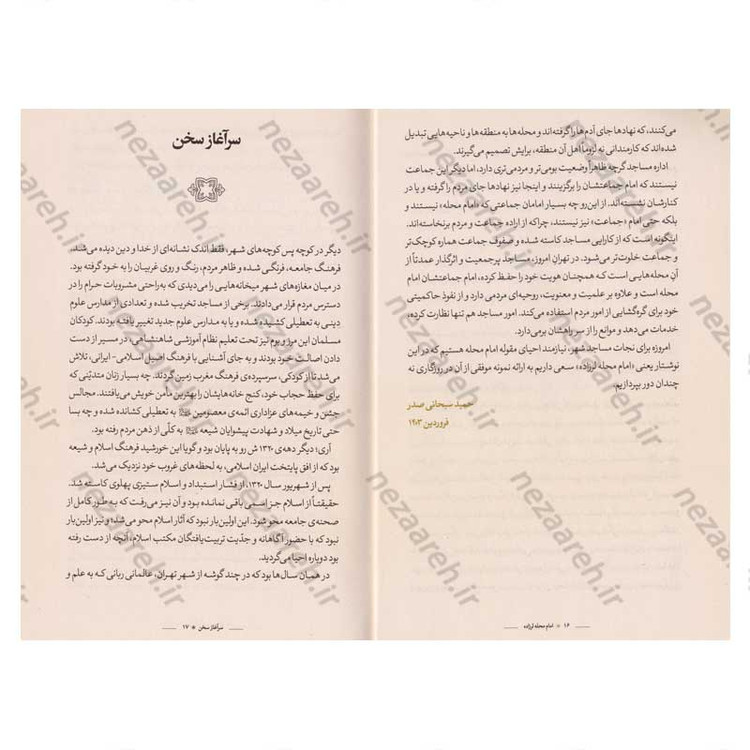 می‌کنند، که نهادها جای آدم‌ها را گرفته‌اند و محله‌ها به منطقه‌ها و ناحیه‌هایی تبدیل
شده‌اند که کارمندانی نه لزوماً اهل آن منطقه، برایش تصمیم می‌گیرند.
اداره مساجد گرچه ظاهراً وضعیت بومی‌تر و مردمی‌تری دارد، اما دیگر این جماعت
نیستند که امام جماعتشان را برگزینند و اینجا نیز نهادها جای مردم را گرفته و یا در
کنارشان نشسته‌اند. از این رو چه بسیار امامان جماعتی که «امام محله» نیستند و
بلکه حتی امام «جماعت» نیز نیستند، چراکه از اراده جماعت و مردم برنخاسته‌اند.
اینگونه است که از کارایی مساجد کاسته شده و صفوف جماعت هماره کوچک‌تر
و جماعت خلوت‌تر می‌شود. در تهران امروز، مساجد پرجمعیت و اثرگذار عمدتاً از
آنِ محله‌هایی است که همچنان هویت خود را حفظ کرده، امام جماعتشان امام
محله است و علاوه بر علمیت و معنویت، روحیه‌ای مردمی دارد و از نفوذ حاکمیتی
خود برای گره‌گشایی از امور مردم استفاده می‌کند. امور مساجد هم تنها نظارت کرده،
خدمات می‌دهد و موانع را از سر راهشان برمی‌دارد.
امروزه برای نجات مساجد شهر، نیازمند احیای مقوله امام محله هستیم که در این
نوشتار یعنی «امام محله لرزاده» سعی داریم به ارائه نمونه موفقی از آن در روزگاری نه
چندان دور بپردازیم.
حمید سبحانی صدر
فروردین ۱۴۰۳
۱۶ * امام محله لرزاده
سرآغاز سخن
دیگر در کوچه پس کوچه‌های شهر، فقط اندک نشانه‌ای از خدا و دین دیده می‌شد.
فرهنگ جامعه، فرنگی شده و ظاهر مردم، رنگ و روی غربیان را به خود گرفته بود.
در میان مغازه‌های شهر میخانه‌هایی را می‌دیدی که به‌راحتی مشروبات حرام را در
دسترس مردم قرار می‌دادند. برخی از مساجد تخریب شده و تعدادی از مدارس علوم
دینی به تعطیلی کشیده شده و یا به مدارس علوم جدید تغییر یافته بودند. کودکان
مسلمان این مرز و بوم نیز تحت تعلیم نظام آموزشی شاهنشاهی، در مسیر از دست
دادن اصالت خود بودند و به جای آشنایی با فرهنگ اصیل اسلامی- ایرانی، تلاش
می‌شد تا از کودکی، سرسپرده‌ی فرهنگ مغرب زمین گردند. چه بسیار زنان متدیّنی که
برای حفظ حجاب خود، کنج خانه‌هایشان را بهترین مأمن خویش می‌یافتند. مجالس
جشن و خیمه‌های عزاداری ائمه‌ی معصومین به تعطیلی کشانده شده و چه بسا
حتی تاریخ میلاد و شهادت پیشوایان شیعه به کلّی از ذهن مردم رفته بود.
آری؛ دیگر دهه‌ی ۱۳۲۰ ش رو به پایان بود و گویا این خورشید فرهنگ اسلام و شیعه
بود که از افق پایتخت ایران اسلامی، به لحظه‌های غروب خود نزدیک می‌شد.
پس از شهریور سال ۱۳۲۰، از فشار استبداد و اسلام ستیزی پهلوی کاسته شد.
حقیقتاً از اسلام جز اسمی باقی نمانده بود و آن نیز می‌رفت که به طور کامل از
صحنه‌ی جامعه محو شود. این اولین بار نبود که آثار اسلام محو می‌شد؛ و نیز اولین بار
نبود که با حضور آگاهانه و جدّیت تربیت‌یافتگان مکتب اسلام، آنچه از دست رفته
بود دوباره احیا می‌گردید.
در همان سال‌ها بود که در چند گوشه از شهر تهران، عالمانی ربانی که به علم و
سرآغاز سخن * ۱۷
nezaareh.ir
nezaareh.ir
nezaareh.ir
nezaareh.ir
nezaareh.ir
nezaareh.ir
nezaareh.ir
nezaareh.ir
nezaareh.ir